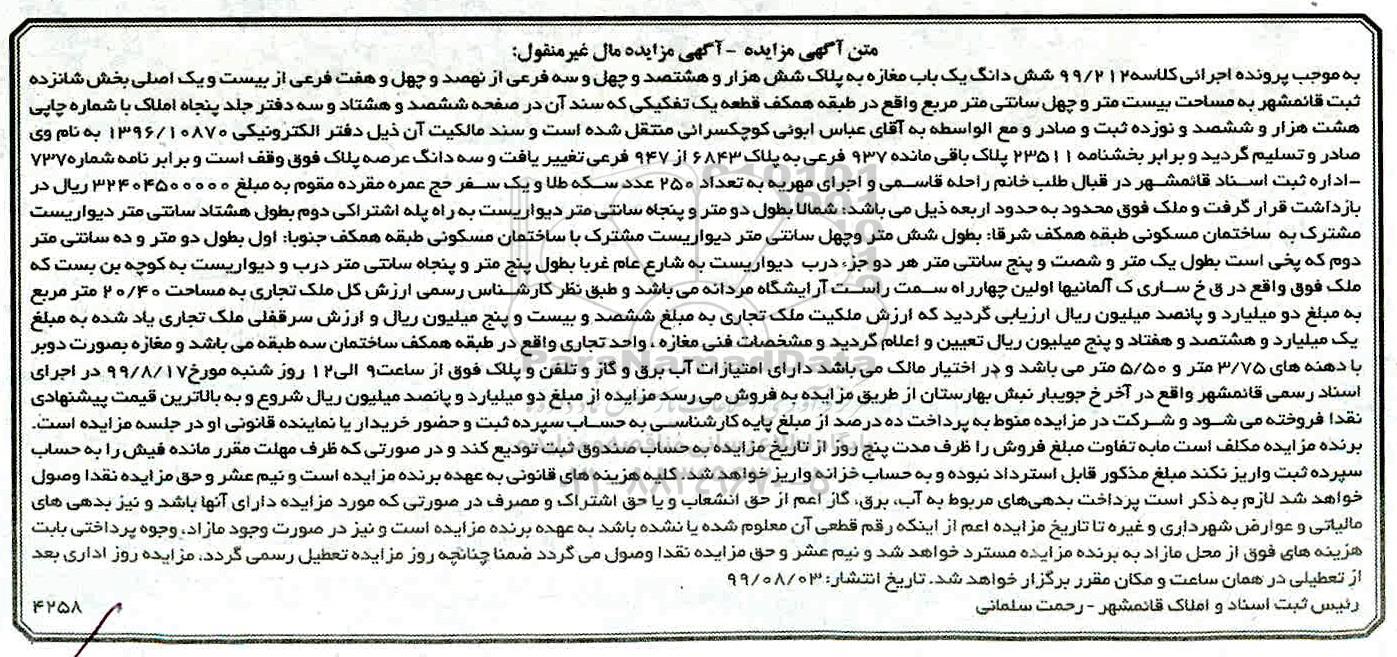 متن آگهی مزایده -آگهی مزایده مال غیرمنقول:
به موجب پرونده اجرائی کلاسه۹۹/۲۱۲ شش دانگ یک باب مغازه به پلاک شش هزار و هشتصد و چهل و سه فرعی از نهصد و چهل و هفت فرعی از بیست و یک اصلی بخش شانزده
ثبت قائمشهر به مساحت بیست متر و چهل سانتی متر مربع واقع در طبقه همکف قطعه یک تفکیکی که سند آن در صفحه ششصد و هشتاد و سه دفتر جلد پنجاه املاک با شماره چاپی
هشت هزار و ششصد و نوزده ثبت و صادر و مع الواسطه به آقای عباس ابوئی کوچکسرائی منتقل شده است و سند مالکیت آن ذیل دفتر الکترونیکی ۱۳۹۶/۱۰۸۷۰ به نام وی
صادر و تسلیم گردید و برابر بخشنامه ۲۳۵۱۱ پلاک باقی مانده ۹۳۷ فرعی به پلاک ۶۸۴۳ از ۹۴۷ فرعی تغییر یافت و سه دانگ عرصه پلاک فوق وقف است و برابر نامه شماره۷۳۷
-اداره ثبت اسناد قائمشهر در قبال طلب خانم راحله قاسمی و اجرای مهریه به تعداد ۲۵۰ عدد سکه طلا و یک سفر حج عمره مفرده مقوم به مبلغ ۳۲۴۰۴۵۰۰۰۰۰ ریال در
بازداشت قرار گرفت و ملک فوق محدود به حدود اربعه ذیل می باشد: شمالا بطول دو متر و پنجاه سانتی متر دیواریست به راه پله اشتراکی دوم بطول هشتاد سانتی متر دیواریست
مشترک به ساختمان مسکونی طبقه همکف شرقا: بطول شش متر وچهل سانتی متر دیواریست مشترک با ساختمان مسکونی طبقه همکف جنوبا: اول بطول دو متر و ده سانتی متر
دوم که پخی است بطول یک متر و شصت و پنج سانتی متر هر دو جزء درب دیواریست به شارع عام غربا بطول پنج متر و پنجاه سانتی متر درب و دیواریست به کوچه بن بست که
ملک فوق واقع در ق خ ساری ک آلمانیها اولین چهارراه سمت راست آرایشگاه مردانه می باشد و طبق نظر کارشناس رسمی ارزش کل ملک تجاری به مساحت ۲۰/۴۰ متر مربع
به مبلغ دو میلیارد و پانصد میلیون ریال ارزیابی گردید که ارزش ملکیت ملک تجاری به مبلغ ششصد و بیست و پنج میلیون ریال و ارزش سرقفلی ملک تجاری یاد شده به مبلغ
یک میلیارد و هشتصد و هفتاد و پنج میلیون ریال تعیین و اعلام گردید و مشخصات فنی مغازه ، واحد تجاری واقع در طبقه همکف ساختمان سه طبقه می باشد و مغازه بصورت دوبر
با دهنه های ۳/۷۵ متر و ۵/۵۰ متر می باشد و در اختیار مالک می باشد دارای امتیازات آب برق و گاز و تلفن و پلاک فوق از ساعت۹ الی۱۲ روز شنبه مورخ۹۹/۸/۱۷ در اجرای
اسناد رسمی قائمشهر واقع در آخر خ جویبار نبش بهارستان از طریق مزایده به فروش می رسد مزایده از مبلغ دو میلیارد و پانصد میلیون ریال شروع و به بالاترین قیمت پیشنهادی
نقدا فروخته می شود و شرکت در مزایده منوط به پرداخت ده درصد از مبلغ پایه کارشناسی به حساب سپرده ثبت و حضور خریدار یا نماینده قانونی او در جلسه مزایده است.
برنده مزایده مکلف است مابه تفاوت مبلغ فروش را ظرف مدت پنج روز از تاریخ مزایده به حساب صندوق ثبت تودیع کند و در صورتی که ظرف مهلت مقرر مانده فیش را به حساب
سپرده ثبت واریز نکند مبلغ مذکور قابل استرداد نبوده و به حساب خزانه واریز خواهد شد، کلیه هزینه های قانونی به عهده برنده مزایده است و نیم عشر و حق مزایده نقدا وصول
خواهد شد لازم به ذکر است پرداخت بدهی‌های مربوط به آب، برق، گاز اعم از حق انشعاب و یا حق اشتراک و مصرف در صورتی که مورد مزایده دارای آنها باشد و نیز بدهی های
مالیاتی و عوارض شهرداری و غیره تا تاریخ مزایده اعم از اینکه رقم قطعی آن معلوم شده یا نشده باشد به عهده برنده مزایده است و نیز در صورت وجود مازاد، وجوه پرداختی بابت
هزینه های فوق از محل مازاد به برنده مزایده مسترد خواهد شد و نیم عشر و حق مزایده نقدا وصول می گردد ضمنا چنانچه روز مزایده تعطیل رسمی گردد، مزایده روز اداری بعد
از تعطیلی در همان ساعت و مکان مقرر برگزار خواهد شد. تاریخ انتشار: ۹۹/۰۸/۰۳
رئیس ثبت اسناد و املاک قائمشهر - رحمت سلمانی
۴۲۵۸
ParsNamadData